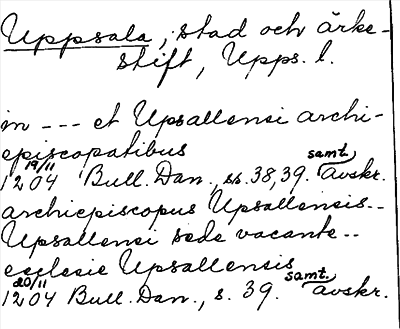 Uppsala, stad och ärke-
stift, Upps. l.
in --- et Upsallensi archi-
episcopatibus
19/11 samt.
1204 Bull. Dan., ss. 38, 39. avskr.
archiepiscopus Upsallensis--
Upsallensi sede vacante--
ecclesie Upsallensis
20/11 samt.
1204 Bull. Dan., s. 39. avskr.